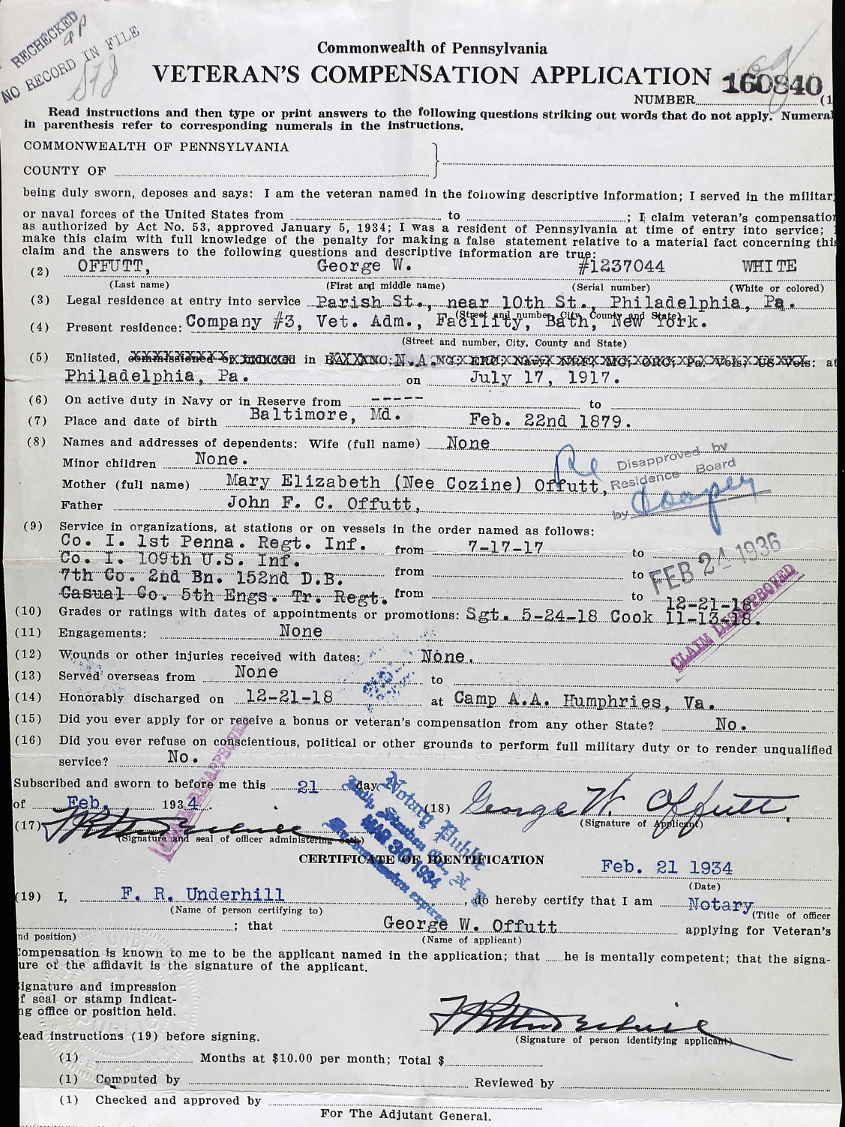 RECHECKED
NO RECORD IN FILE
Commonwealth of Pennsylvania
VETERAN'S COMPENSATION APPLICATION 160840
NUMBER (1
Read instructions and then type or print answers to the following questions striking out words that do not apply. Numeral
in parenthesis refer to corresponding numerals in the instructions.
COMMONWEALTH OF PENNSYLVANIA
COUNTY OF
being duly sworn, deposes and says: I am the veteran named in the following descriptive information; I served in the militar
or naval forces of the United States from to ; I claim veteran's compensation
as authorized by Act No. 53, approved January 5, 1934; I was a resident of Pennsylvania at time of entry into service; I
make this claim with full knowledge of the penalty for making a false statement relative to a material fact concerning this
claim and the answers to the following questions and descriptive information are true:
(2) OFFUTT, George W. #1237044 WHITE
(Last name) (First and middle name) (Serial number) (White or colored)
(3) Legal residence at entry into service Parish St., near 10th St., Philadelphia, Pa.
(Street and number, City, County and State)
(4) Present residence: Company #3, Vet. Adm., Facility, Bath, New York.
(Street and number, City, County and State)
(5) Enlisted, in N.A. at
Philadelphia, Pa. on July 17, 1917.
(6) On active duty in Navy or in Reserve from ----- to
(7) Place and date of birth Baltimore, Md. Feb. 22nd 1879.
(8) Names and addresses of dependents: Wife (full name) None
Minor children None.
Mother (full name) Mary Elizabeth (Nee Cozine) Offutt,
Father John F. C. Offutt,
Re Disapproved by
Residence Board
by Cooper
(9) Service in organizations, at stations or on vessels in the order named as follows:
Co. I. 1st Penna. Regt. Inf. from 7-17-17 to
Co. I. 109th U.S. Inf.
7th Co. 2nd Bn. 152nd D.B. from to FEB 24 1936
Casual Co. 5th Engs. Tr. Regt. from to 12-21-18
(10) Grades or ratings with dates of appointments or promotions: Sgt. 5-24-18 Cook 11-13-18.
CLAIM DISAPPROVED
(11) Engagements: None
(12) Wounds or other injuries received with dates: None.
(13) Served overseas from None to
(14) Honorably discharged on 12-21-18 at Camp A.A. Humphries, Va.
(15) Did you ever apply for or receive a bonus or veteran's compensation from any other State? No.
(16) Did you ever refuse on conscientious, political or other grounds to perform full military duty or to render unqualified
service? No.
Subscribed and sworn to before me this 21 day
of Feb. 1934.
CLAIM DISAPPROVED
Notary Public
Bath, Steuben Co., N. Y.
My commission expires
MAR 30 1934
(18) George W. Offutt.
(Signature of Applicant)
(17) F R Underhill
(Signature and seal of officer administering oath)
CERTIFICATE OF IDENTIFICATION
Feb. 21 1934
(Date)
(19) I, F. R. Underhill, do hereby certify that I am Notary
(Name of person certifying to) (Title of officer
; that George W. Offutt applying for Veteran's
nd position) (Name of applicant)
Compensation is known to me to be the applicant named in the application; that he is mentally competent; that the signa-
ure of the affidavit is the signature of the applicant.
ignature and impression
f seal or stamp indicat-
ng office or position held.
F R Underhill
(Signature of person identifying applicant)
ead instructions (19) before signing.
(1) Months at $10.00 per month; Total $
(1) Computed by Reviewed by
(1) Checked and approved by
For The Adjutant General.